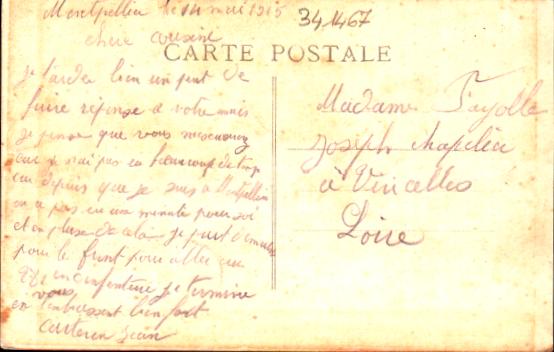 Montpellier le 14 mai 1915
341467
chere cousine
CARTE POSTALE
je tarde bien un peut de
faire réponse a votre mais
je pense que vous mescuserez
car je n'ai pas eu beaucoup de temp
car depuis que je suis a Montpellier
on a pas eu une minute pour soi
et en plus de cela je part demain
pour le front pour aller au
en infanterie je termine
en vous embrassent bien fort
jean
Madame Fayolle
Joseph
à Vincelles
Loire